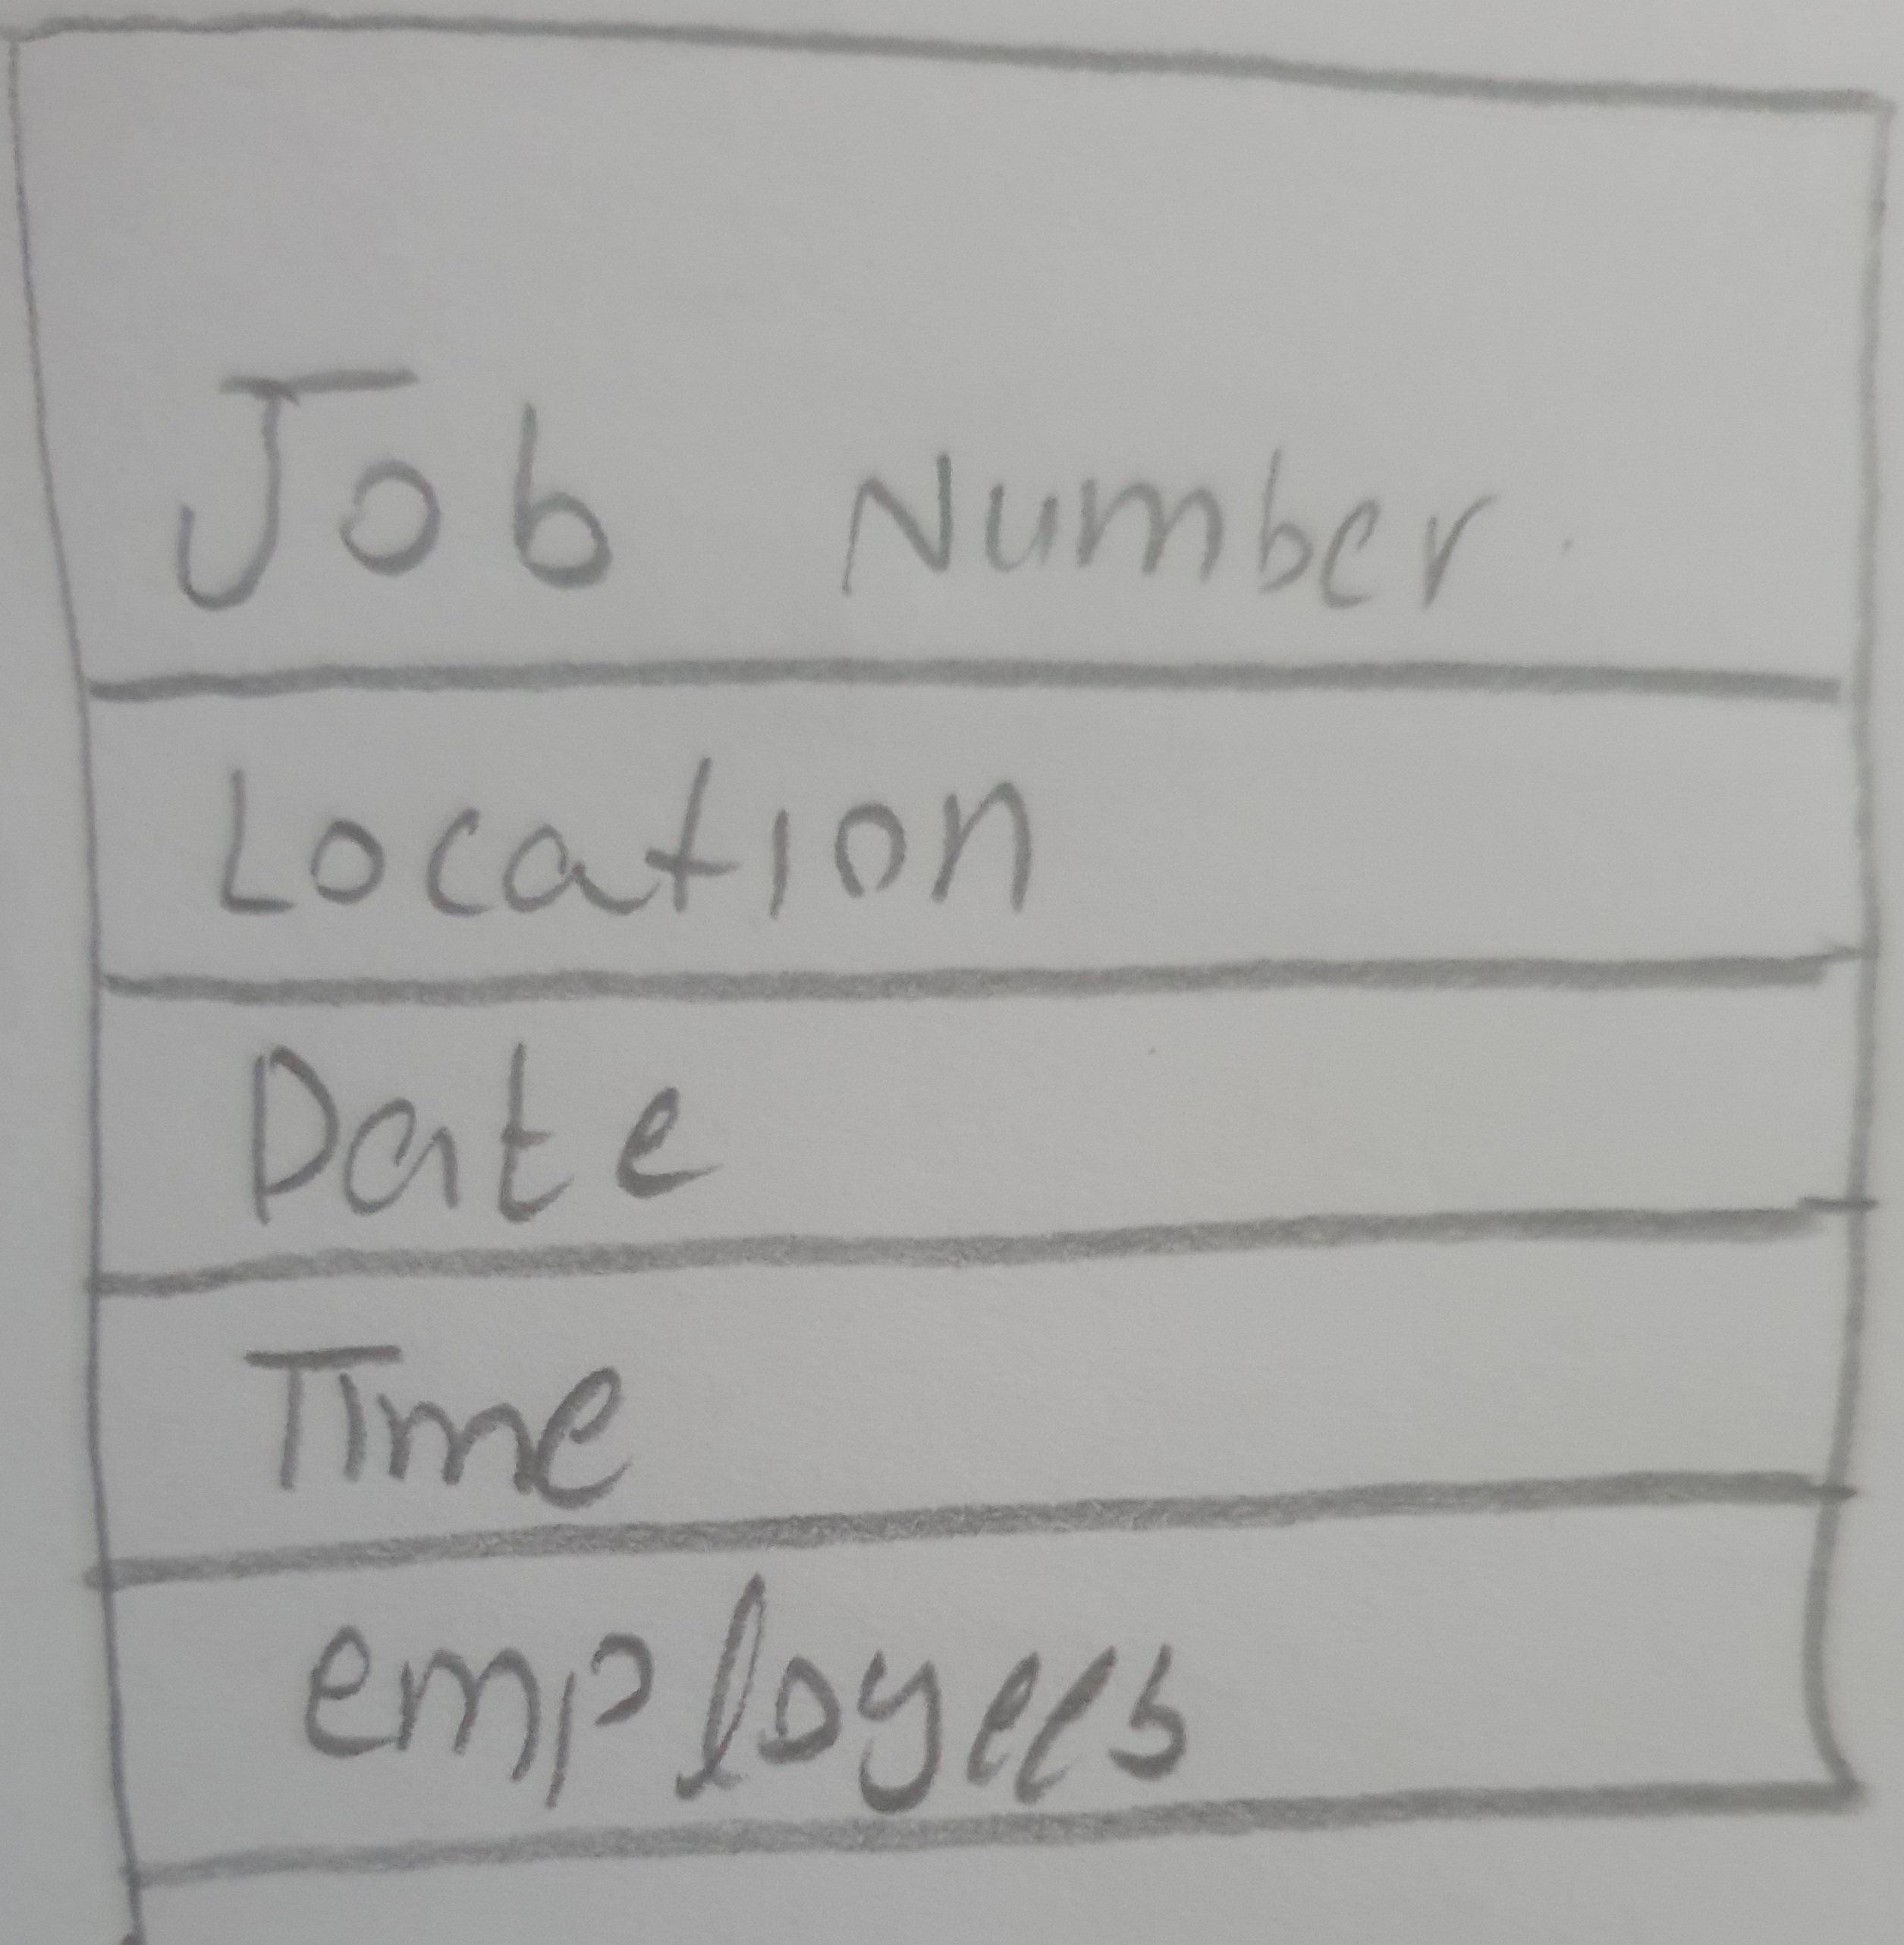 Job Number
Location
Date
Time
employees